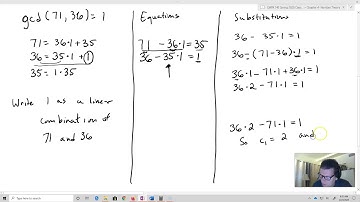 gcd(71, 36) = 1
71 = 36·1 + 35
36 = 35·1 + 1
35 = 1·35
Write 1 as a linear
combination of
71 and 36
Equations
71 - 36·1 = 35
36 - 35·1 = 1
Substitutions
36 - 35·1 = 1
36 - (71 - 36)·1 = 1
36·1 - 71·1 + 36·1 = 1
36·2 - 71·1 = 1
36·2 - 71·1 = 1
So c₁ = 2 and